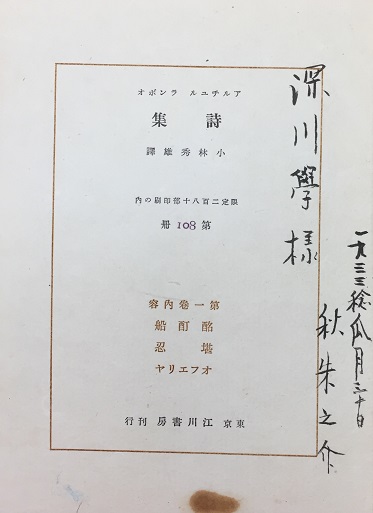 一九三三稔瓜月三十日
秋朱之介
深川學様
アルチュル ランボオ
詩集
小林秀雄譯
限定二百八十部印刷の内
第108冊
第一卷內容
酩酊船
堪忍
オフエリヤ
東京 江川書房 刊行